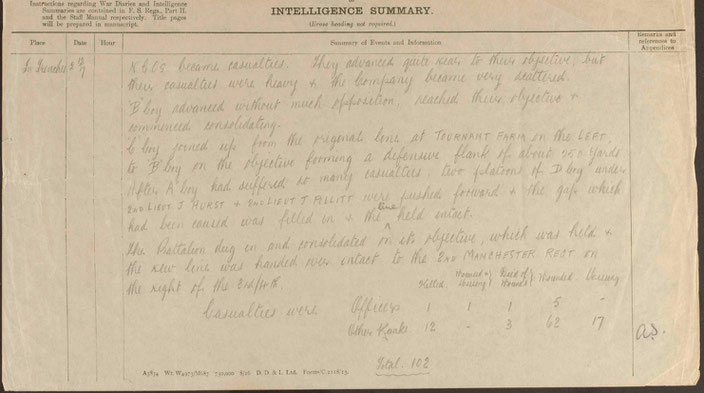 Instructions regarding War Diaries and Intelligence
Summaries are contained in F. S. Regs., Part II.
and the Staff Manual respectively. Title pages
will be prepared in manuscript.
INTELLIGENCE SUMMARY.
(Erase heading not required.)
Place Date Hour Summary of Events and Information Remarks and references to Appendices
In Trenches
became casualties. They advanced quite near to their objective, but
their casualties were heavy & the Company became very scattered.
'B' Coy advanced without much opposition, reached their objective &
commenced consolidating.
'C' Coy joined up from the original line at TOURNANT FARM on the LEFT,
to 'B' Coy on the objective forming a defensive flank of about yards
After 'A' Coy had suffered so many casualties two platoons of D Coy under
2nd LIEUT J HURST & 2nd LIEUT T were pushed forward & the gap which
had been caused was filled in & the line held intact.
The Battalion dug in and consolidated on its objective, which was held &
the new line was handed over intact to the 2nd MANCHESTER REGT on
the right of the
Killed Wounded & Missing Died of Wounds Wounded Missing
Casualties were Officers 1 1 1 5 -
Other Ranks 12 - 3 62 17
Total. 102
A5834 Wt. W4973/M687 750,000 8/16 D. D. & L. Ltd. Forms/C.2118/13.